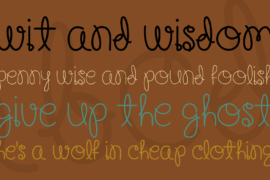 wit and wisdom
penny wise and pound foolish
give up the ghost
he's a wolf in cheap clothing